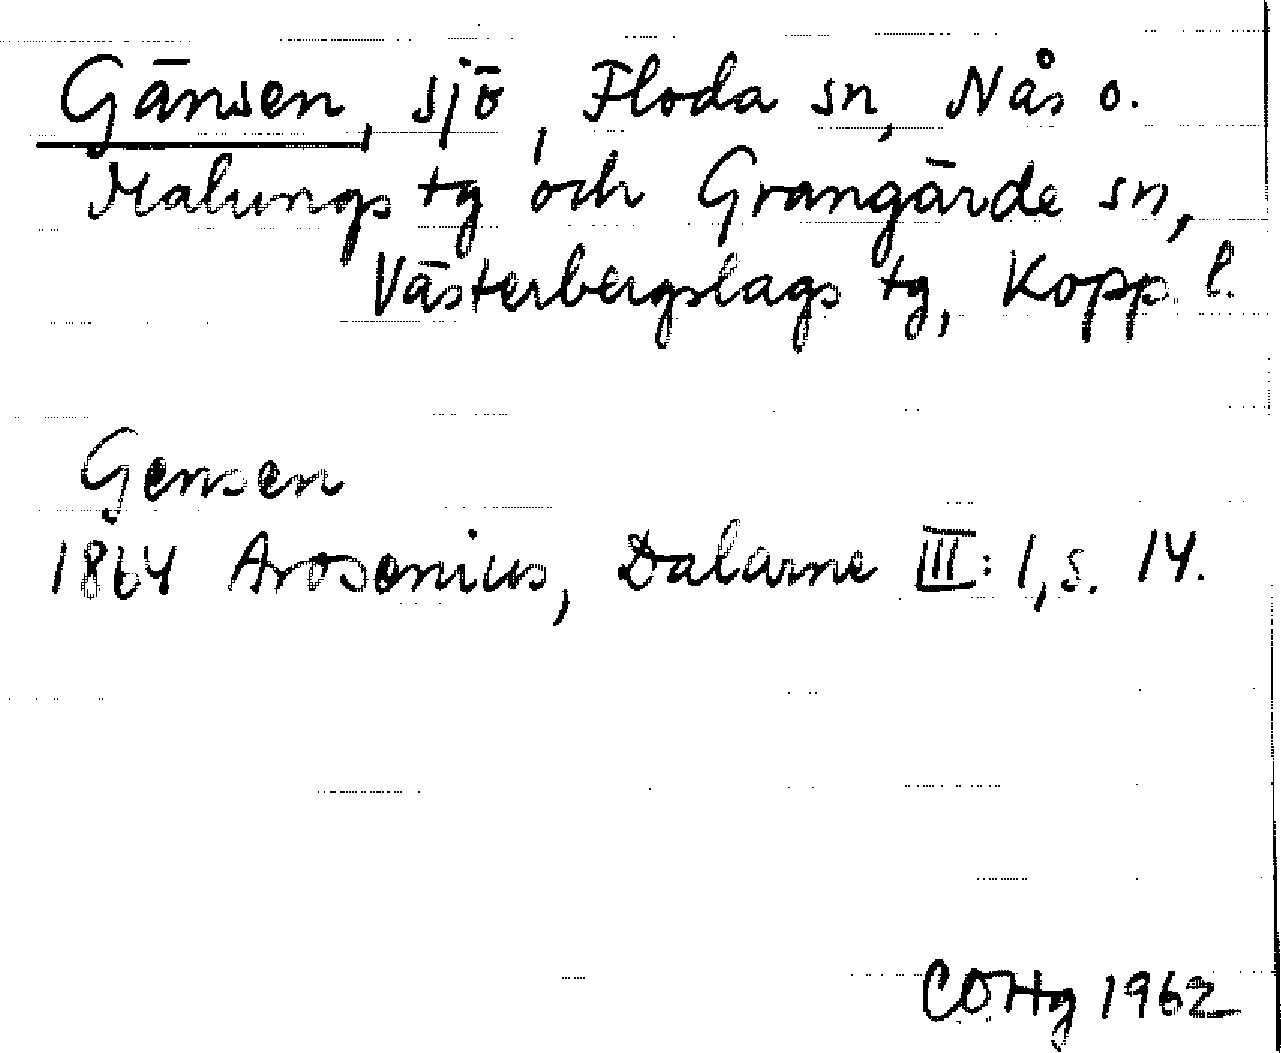 Gänsen, sjö, Floda sn, Nås o.
Malungs tg och Grangärde sn,
Västerbergslags tg, Kopp. l.
Gensen
1864 Arosenius, Dalarne III: 1, s. 14.
COHg 1962